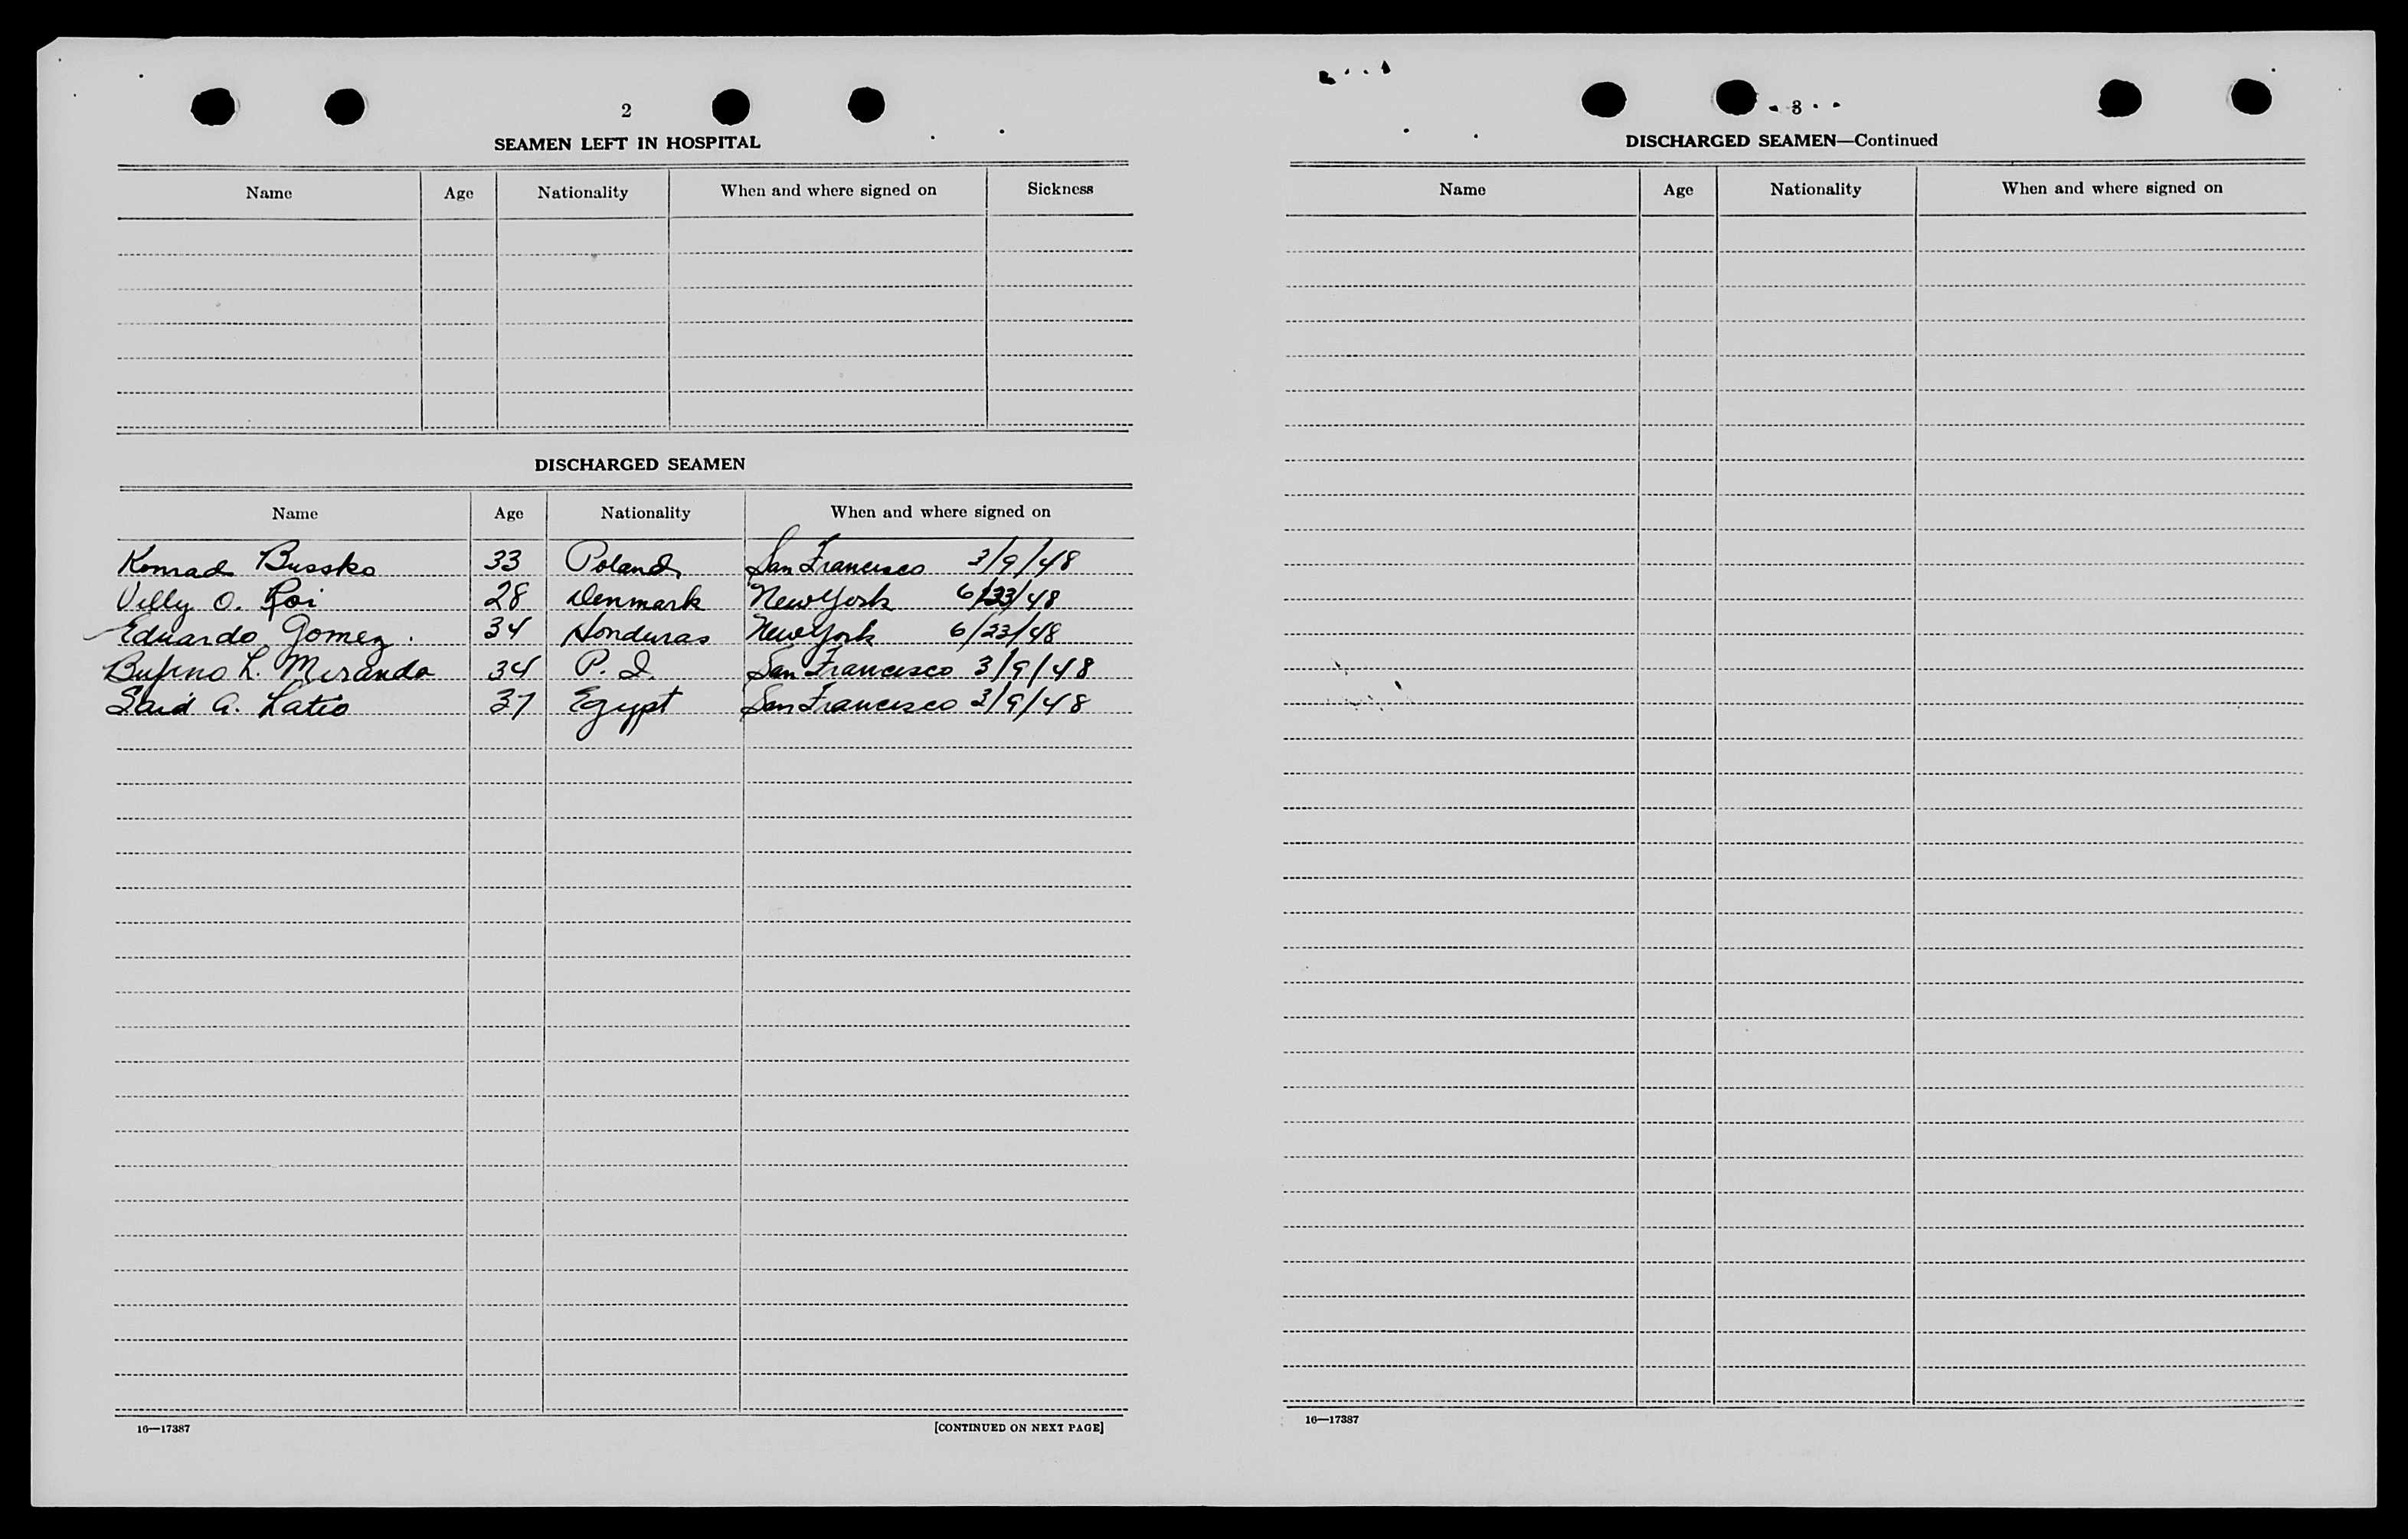 2
SEAMEN LEFT IN HOSPITAL
Name Age Nationality When and where signed on Sickness
DISCHARGED SEAMEN
Name Age Nationality When and where signed on
Konrad Bussko 33 Poland San Francisco 3/9/48
Villy O. Roi 28 Denmark New York 6/23/48
Eduardo Gomez. 34 Honduras New York 6/23/48
Bufino L. Miranda 34 P. I. San Francisco 3/9/48
Said A. Latio 37 Egypt San Francisco 3/9/48
16—17387 [CONTINUED ON NEXT PAGE]
3
DISCHARGED SEAMEN—Continued
Name Age Nationality When and where signed on
16—17387